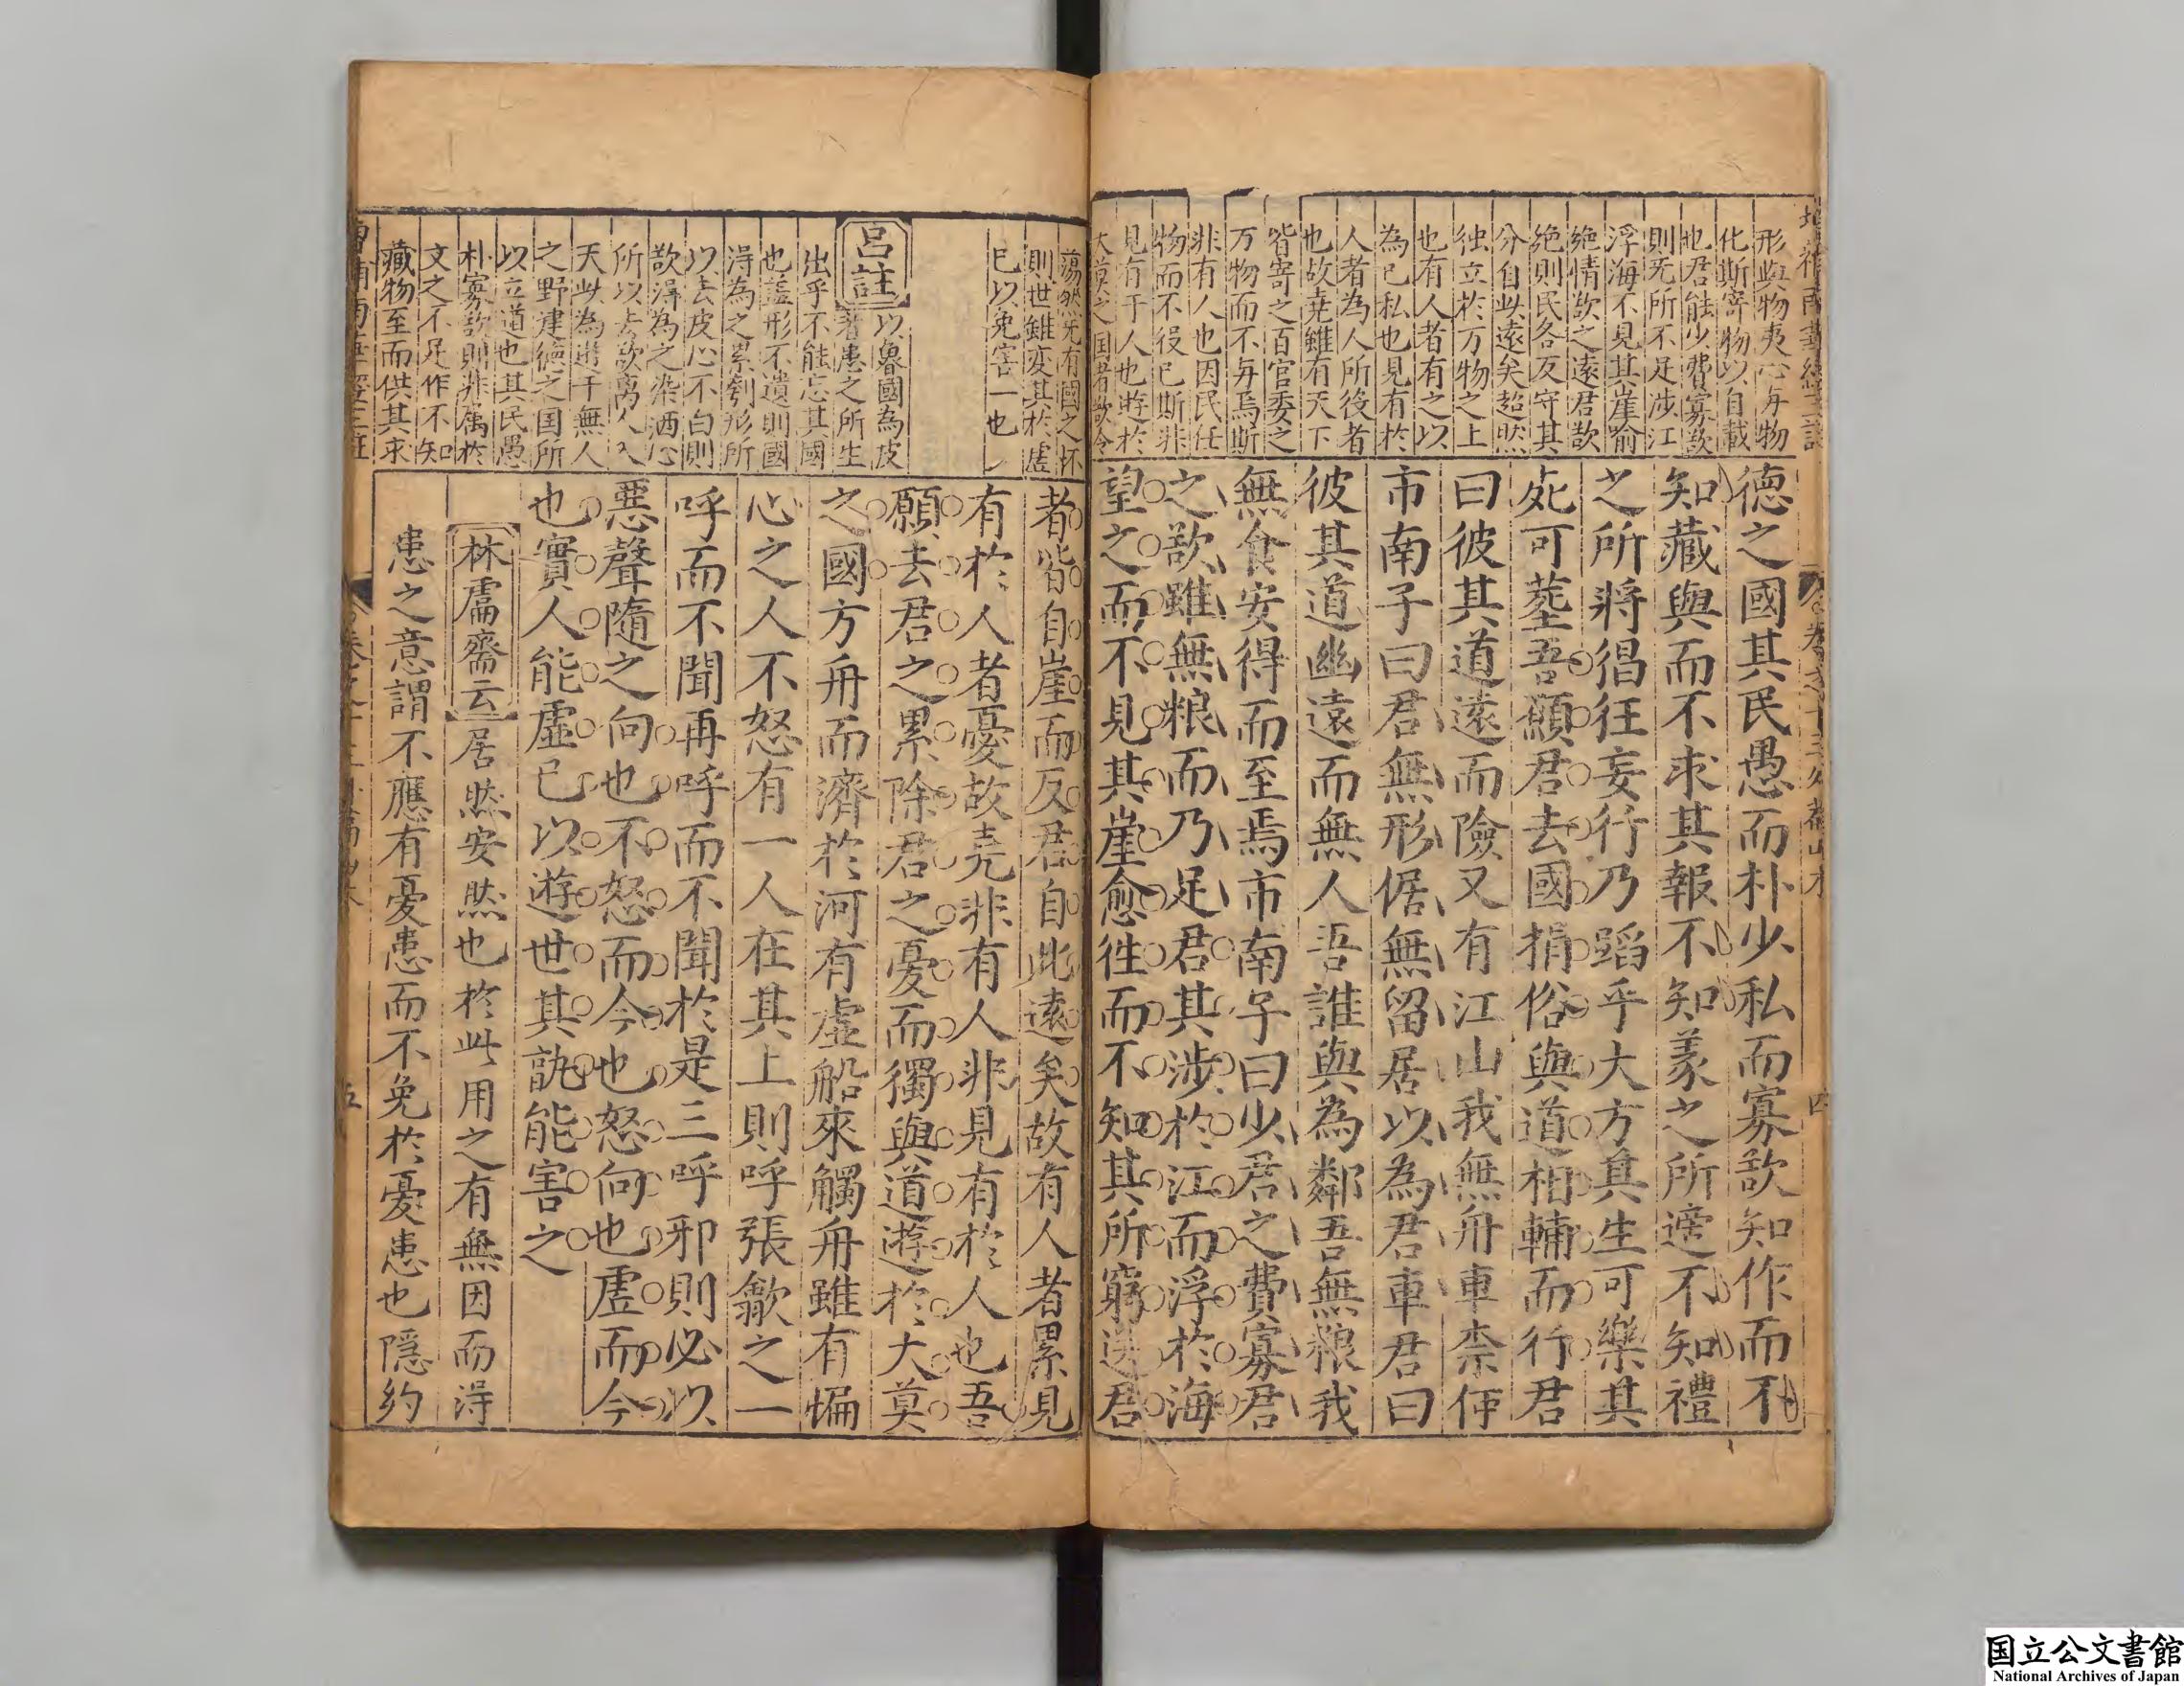 形與物夷心与物
化斯寄物以自載
也君能少費寡欲
則旡所不足涉江
浮海不見其崖喻
絶情欲之遠君欲
絶則民各反守其
分自此遠矣超然
独立於万物之上
也有人者有之以
為己私也見有於
人者為人所役者
也故尭雖有天下
皆寄之百官委之
万物而不与焉斯
非有人也因民任
物而不役己斯非
見有于人也遊於
大莫之国者欲令
德之國其民愚而朴少私而寡欲知作而不
知藏與而不求其報不知義之所適不知禮
之所將猖狂妄行乃蹈乎大方其生可樂其
死可塟吾願君去國捐俗與道相輔而行君
曰彼其道遠而險又有江山我無舟車柰何
市南子曰君無形倨無留居以為君車君曰
彼其道幽遠而無人吾誰與為鄰吾無粮我
無食安得而至焉市南子曰少君之費寡君
之欲雖無粮而乃足君其涉於江而浮於海
望之而不見其崖愈徃而不知其所窮送君
四
蕩然旡有國之怀
則世雖変其於虛
已以免害一也
呂註 以魯國為皮
者患之所生
出乎不能忘其國
也盖形不遺則國
得為之累刳形所
以去皮心不白則
欲得為之染洒心
所以去欲离人入
天此為遊于無人
之野建德之国所
以立道也其民愚
朴寡欲則非属於
文之不足作不知
藏物至而供其求
者皆自崖而反君自此遠矣故有人者累見
有於人者憂故尭非有人非見有於人也吾
願去君之累除君之憂而獨與道遊於大莫
之國方舟而濟於河有虛船來觸舟雖有惼
心之人不怒有一人在其上則呼張歙之一
呼而不聞再呼而不聞於是三呼邪則必以
惡聲隨之向也不怒而今也怒向也虛而今
也實人能虛己以遊世其孰能害之
林鬳齋云 居然安然也於此用之有無因而得
患之意謂不應有憂患而不免於憂患也隱約
五
国立公文書館
National Archives of Japan